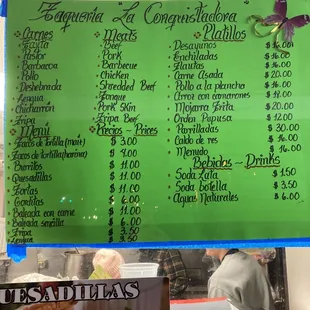 Taqueria "La Conquistadora"
Carnes
Fajita
Pastor
Barbacoa
Pollo
Deshebrada
Lengua
Chicharrón
Tripa
Meats
Beef
Pork
Barbecue
Chicken
Shredded Beef
Tongue
Pork Skin
Tripa Beef
Menú Precios - Prices
Tacos de Tortilla (maiz) $ 3.00
Tacos de Tortilla (harina) $ 4.00
Burritos $ 11.00
Quesadillas $ 11.00
Tortas $ 11.00
Gorditas $ 6.00
Baleada con carne $ 11.00
Baleada sencilla $ 6.00
Tripa $ 3.50
$ 3.50
Platillos
Desayunos $ 16.00
Enchiladas $ 16.00
Flautas $ 16.00
Carne Asada $ 20.00
Pollo a la plancha $ 16.00
Arroz con camarones $ 17.00
Mojarra frita $ 20.00
Orden Pupusa $ 12.00
Parrilladas $ 30.00
Caldo de res $ 16.00
Menudo $ 16.00
Bebidas - Drinks
Soda Lata $ 1.50
Soda botella $ 3.50
Aguas Naturales $ 6.00
QUESADILLAS